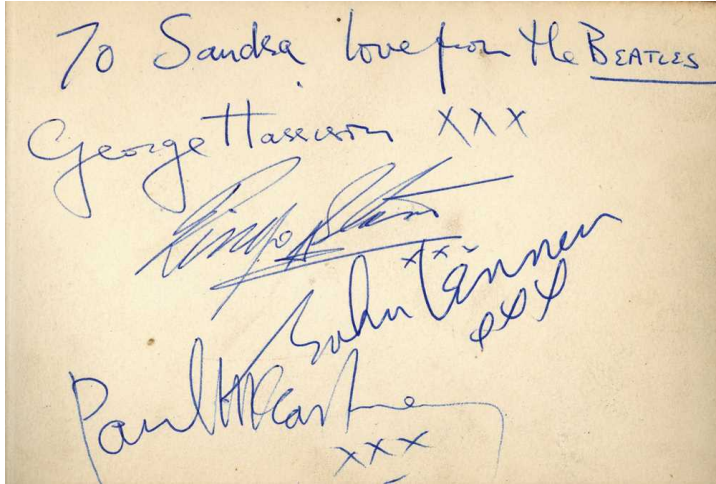 To Sandra love from the BEATLES
George Harrison XXX
Ringo Starr
xxx
John Lennon
xxx
Paul McCartney
xxx